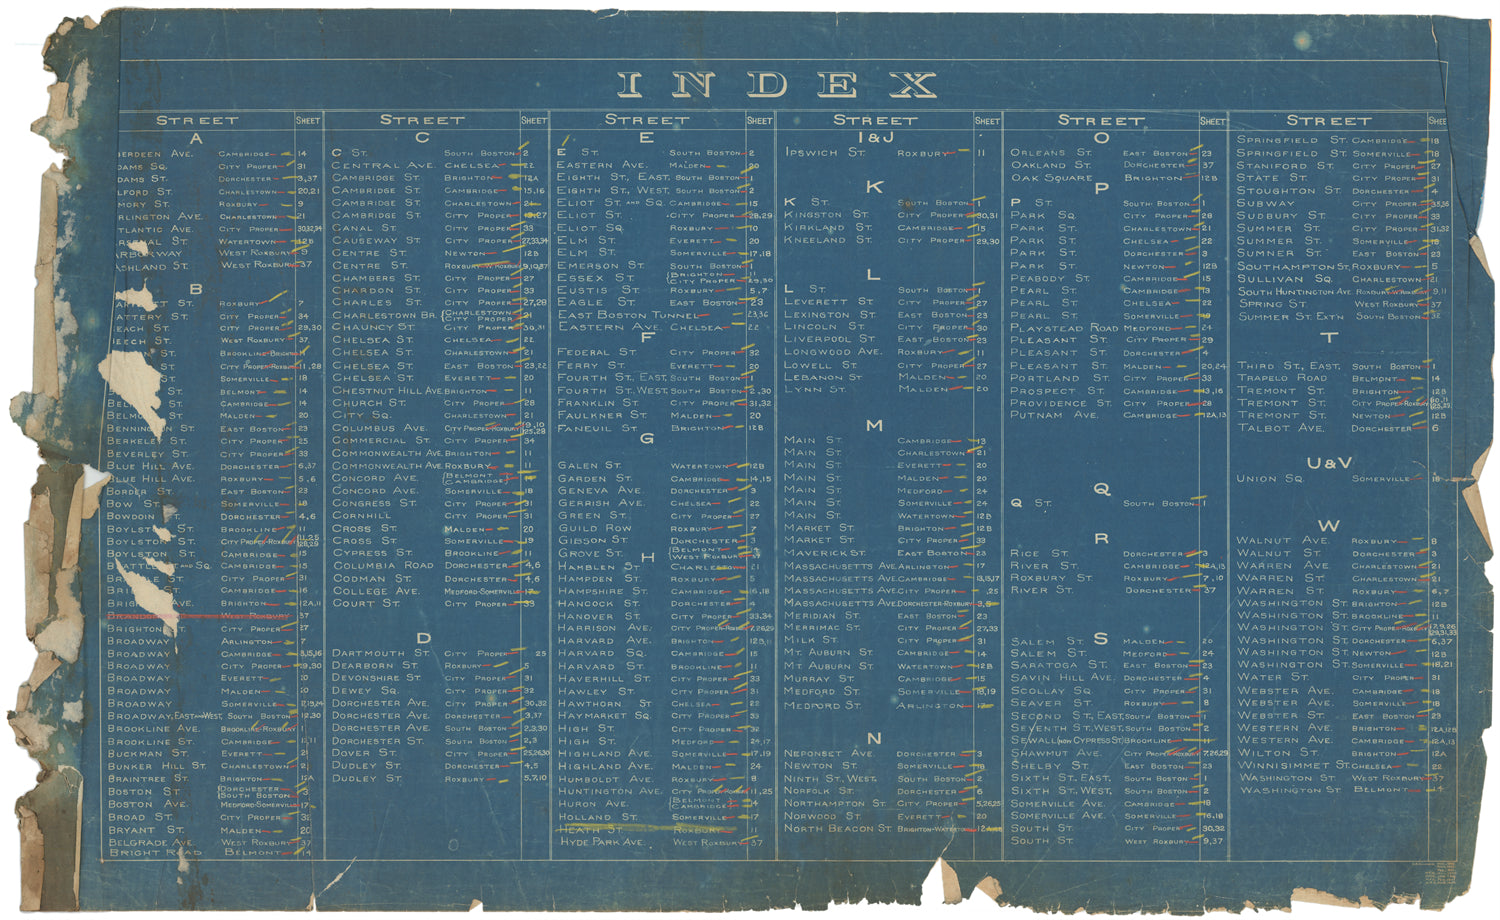 INDEX
STREET SHEET
A
BERDEEN AVE. CAMBRIDGE 14
DAMS SQ. CITY PROPER 31
DAMS ST. DORCHESTER 3,37
LFORD ST. CHARLESTOWN 20,21
MORY ST. ROXBURY 9
RLINGTON AVE. CHARLESTOWN 21
TLANTIC AVE. CITY PROPER 30,32,34
ST. WATERTOWN 12B
ARBORWAY WEST ROXBURY 9
ASHLAND ST. WEST ROXBURY 37
B
ST. ROXBURY 7
ATTERY ST. CITY PROPER 34
EACH ST. CITY PROPER 29,30
EECH ST. WEST ROXBURY 37
ST. BROOKLINE-BRIGHTON
ST. CITY PROPER-ROXBURY 11,28
ST. SOMERVILLE 18
ST. BELMONT 14
BEL ST. CAMBRIDGE 14
BELM ST. MALDEN 20
BENNINGTON ST. EAST BOSTON 23
BERKELEY ST. CITY PROPER 25
BEVERLEY ST. CITY PROPER 33
BLUE HILL AVE. DORCHESTER 6,37
BLUE HILL AVE. ROXBURY 5,6
BORDER ST. EAST BOSTON 23
BOW ST. SOMERVILLE 18
BOWDOIN ST. DORCHESTER 4,6
BOYLST ST. BROOKLINE 11
BOYLSTON ST. CITY PROPER-ROXBURY 11,25 28,29
BOYLSTON ST. CAMBRIDGE 15
BRATTLE ST. AND SQ. CAMBRIDGE 15
BR LE ST. CITY PROPER 31
BRI ST. CAMBRIDGE 16
BRIGH AVE. BRIGHTON 12A,11
WEST ROXBURY 37
BRIGHTON ST. CITY PROPER 27
BROADWAY ARLINGTON 7
BROADWAY CAMBRIDGE 3,15,16
BROADWAY CITY PROPER 29,30
BROADWAY EVERETT 20
BROADWAY MALDEN 20
BROADWAY SOMERVILLE 17,19,24
BROADWAY, EAST AND WEST, SOUTH BOSTON 1,2,30
BROOKLINE AVE. BROOKLINE-ROXBURY 11
BROOKLINE ST. CAMBRIDGE 11
BUCKMAN ST. EVERETT 21
BUNKER HILL ST. CHARLESTOWN 21
BRAINTREE ST. BRIGHTON 12A
BOSTON ST. {DORCHESTER SOUTH BOSTON 3
BOSTON AVE. MEDFORD-SOMERVILLE 17
BROAD ST. CITY PROPER 32
BRYANT ST. MALDEN 20
BELGRADE AVE. WEST ROXBURY 37
BRIGHT ROAD BELMONT 14
STREET SHEET
C
C ST. SOUTH BOSTON 2
CENTRAL AVE. CHELSEA 22
CAMBRIDGE ST. BRIGHTON 12A
CAMBRIDGE ST. CAMBRIDGE 15,16
CAMBRIDGE ST. CHARLESTOWN 21
CAMBRIDGE ST. CITY PROPER 27
CANAL ST. CITY PROPER 33
CAUSEWAY ST. CITY PROPER 27,33,34
CENTRE ST. NEWTON 12B
CENTRE ST. ROXBURY-W. ROXBURY 9,10,37
CHAMBERS ST. CITY PROPER 27
CHARDON ST. CITY PROPER 33
CHARLES ST. CITY PROPER 27,28
CHARLESTOWN BR. {CHARLESTOWN CITY PROPER 21
CHAUNCY ST. CITY PROPER 30,31
CHELSEA ST. CHELSEA 22
CHELSEA ST. CHARLESTOWN 21
CHELSEA ST. EAST BOSTON 23,22
CHELSEA ST. EVERETT 20
CHESTNUT HILL AVE. BRIGHTON 11
CHURCH ST. CITY PROPER 28
CITY SQ. CHARLESTOWN 21
COLUMBUS AVE. CITY PROPER-ROXBURY 9,10 25,28
COMMERCIAL ST. CITY PROPER 34
COMMONWEALTH AVE. BRIGHTON 11
COMMONWEALTH AVE. ROXBURY 11
CONCORD AVE. {BELMONT CAMBRIDGE} 14
CONCORD AVE. SOMERVILLE 18
CONGRESS ST. CITY PROPER 31
CORNHILL CITY PROPER 31
CROSS ST. MALDEN 20
CROSS ST. SOMERVILLE 19
CYPRESS ST. BROOKLINE 11
COLUMBIA ROAD DORCHESTER 4,6
CODMAN ST. DORCHESTER 4,6
COLLEGE AVE. MEDFORD-SOMERVILLE 17
COURT ST. CITY PROPER 33
D
DARTMOUTH ST. CITY PROPER 25
DEARBORN ST. ROXBURY 5
DEVONSHIRE ST. CITY PROPER 31
DEWEY SQ. CITY PROPER 32
DORCHESTER AVE. CITY PROPER 30,32
DORCHESTER AVE. DORCHESTER 3,37
DORCHESTER AVE. SOUTH BOSTON 2,3,30
DORCHESTER ST. SOUTH BOSTON 2,3
DOVER ST. CITY PROPER 25,26,30
DUDLEY ST. DORCHESTER 4,5
DUDLEY ST. ROXBURY 5,7,10
STREET SHEET
E
E ST. SOUTH BOSTON 2
EASTERN AVE. MALDEN 20
EIGHTH ST., EAST, SOUTH BOSTON 1
EIGHTH ST., WEST, SOUTH BOSTON 2
ELIOT ST. AND SQ. CAMBRIDGE 15
ELIOT ST. CITY PROPER 28,29
ELIOT SQ. ROXBURY 10
ELM ST. EVERETT 20
ELM ST. SOMERVILLE 17,18
EMERSON ST. SOUTH BOSTON 1
ESSEX ST. {BRIGHTON CITY PROPER 11 29,30
EUSTIS ST. ROXBURY 5,7
EAGLE ST. EAST BOSTON 23
EAST BOSTON TUNNEL 23,36
EASTERN AVE. CHELSEA 22
F
FEDERAL ST. CITY PROPER 32
FERRY ST. EVERETT 20
FOURTH ST., EAST, SOUTH BOSTON 1
FOURTH ST. WEST, SOUTH BOSTON 2,30
FRANKLIN ST. CITY PROPER 31,32
FAULKNER ST. MALDEN 20
FANEUIL ST. BRIGHTON 12B
G
GALEN ST. WATERTOWN 12B
GARDEN ST. CAMBRIDGE 14,15
GENEVA AVE. DORCHESTER 3
GERRISH AVE. CHELSEA 22
GREEN ST. CITY PROPER 27
GUILD ROW ROXBURY 7
GIBSON ST. DORCHESTER 3
GROVE ST. {BELMONT WEST ROXBURY 37
H
HAMBLEN ST. CHARLESTOWN 21
HAMPDEN ST. ROXBURY 5
HAMPSHIRE ST. CAMBRIDGE 16,18
HANCOCK ST. DORCHESTER 4
HANOVER ST. CITY PROPER 33,34
HARRISON AVE. CITY PROPER-ROXBURY 7,26,29
HARVARD AVE. BRIGHTON 12B,11
HARVARD SQ. CAMBRIDGE 15
HARVARD ST. BROOKLINE 11
HAVERHILL ST. CITY PROPER 33
HAWLEY ST. CITY PROPER 31
HAWTHORN ST. CHELSEA 22
HAYMARKET SQ. CITY PROPER 33
HIGH ST. CITY PROPER 32
HIGH ST. MEDFORD 24,17
HIGHLAND AVE. SOMERVILLE 17,19
HIGHLAND AVE. MALDEN 24
HUMBOLDT AVE. ROXBURY 8
HUNTINGTON AVE. CITY PROPER-ROXBURY 11,25
HURON AVE. {BELMONT CAMBRIDGE} 14
HOLLAND ST. SOMERVILLE 17
HEATH ST. ROXBURY 11
HYDE PARK AVE. WEST ROXBURY 37
STREET SHEET
I & J
IPSWICH ST. ROXBURY 11
K
K ST. SOUTH BOSTON 1
KINGSTON ST. CITY PROPER 30,31
KIRKLAND ST. CAMBRIDGE 15
KNEELAND ST. CITY PROPER 29,30
L
L ST. SOUTH BOSTON 1
LEVERETT ST. CITY PROPER 27
LEXINGTON ST. EAST BOSTON 23
LINCOLN ST. CITY PROPER 30
LIVERPOOL ST. EAST BOSTON 23
LONGWOOD AVE. ROXBURY 11
LOWELL ST. CITY PROPER 27
LEBANON ST. MALDEN 20
LYNN ST. MALDEN 20
M
MAIN ST. CAMBRIDGE 13
MAIN ST. CHARLESTOWN 21
MAIN ST. EVERETT 20
MAIN ST. MALDEN 20
MAIN ST. MEDFORD 24
MAIN ST. SOMERVILLE 24
MAIN ST. WATERTOWN 12B
MARKET ST. BRIGHTON 12B
MARKET ST. CITY PROPER 33
MAVERICK ST. EAST BOSTON 23
MASSACHUSETTS AVE. ARLINGTON 17
MASSACHUSETTS AVE. CAMBRIDGE 13,15,17
MASSACHUSETTS AVE. CITY PROPER 25
MASSACHUSETTS AVE. DORCHESTER-ROXBURY 3,5
MERIDIAN ST. EAST BOSTON 23
MERRIMAC ST. CITY PROPER 27,33
MILK ST. CITY PROPER 31
MT. AUBURN ST. CAMBRIDGE 14
MT. AUBURN ST. WATERTOWN 12B
MURRAY ST. CAMBRIDGE 15
MEDFORD ST. SOMERVILLE 18,19
MEDFORD ST. ARLINGTON 17
N
NEPONSET AVE. DORCHESTER 3
NEWTON ST. SOMERVILLE 18
NINTH ST., WEST, SOUTH BOSTON 2
NORFOLK ST. DORCHESTER 6
NORTHAMPTON ST. CITY PROPER 5,26,25
NORWOOD ST. EVERETT 20
NORTH BEACON ST. BRIGHTON-WATERTOWN
STREET SHEET
O
ORLEANS ST. EAST BOSTON 23
OAKLAND ST. DORCHESTER 37
OAK SQUARE BRIGHTON 12B
P
P ST. SOUTH BOSTON 1
PARK SQ. CITY PROPER 28
PARK ST. CHARLESTOWN 21
PARK ST. CHELSEA 22
PARK ST. CITY PROPER 31
PARK ST. NEWTON 12B
PEABODY ST. CAMBRIDGE 15
PEARL ST. CAMBRIDGE 13
PEARL ST. CHELSEA 22
PEARL ST. SOMERVILLE 19
PLAYSTEAD ROAD MEDFORD 24
PLEASANT ST. CITY PROPER 29
PLEASANT ST. DORCHESTER 4
PLEASANT ST. MALDEN 20,24
PORTLAND ST. CITY PROPER 33
PROSPECT ST. CAMBRIDGE 13,16
PROVIDENCE ST. CITY PROPER 28
PUTNAM AVE. CAMBRIDGE 12A,13
Q
Q ST. SOUTH BOSTON 1
R
RICE ST. DORCHESTER 3
RIVER ST. CAMBRIDGE 12A,13
ROXBURY ST. ROXBURY 7,10
RIVER ST. DORCHESTER 37
S
SALEM ST. MALDEN 20
SALEM ST. MEDFORD 24
SARATOGA ST. EAST BOSTON 23
SAVIN HILL AVE. DORCHESTER 4
SCOLLAY SQ. CITY PROPER 31
SEAVER ST. ROXBURY 8
SECOND ST., EAST, SOUTH BOSTON 1
SEVENTH ST. WEST, SOUTH BOSTON 2
SEWALL (NOW CYPRESS ST.) BROOKLINE 11
SHAWMUT AVE. CITY PROPER-ROXBURY 7,26,29
SHELBY ST. EAST BOSTON 23
SIXTH ST. EAST, SOUTH BOSTON 1
SIXTH ST. WEST, SOUTH BOSTON 2
SOMERVILLE AVE. CAMBRIDGE 18
SOMERVILLE AVE. SOMERVILLE 16,18
SOUTH ST. CITY PROPER 30,32
SOUTH ST. WEST ROXBURY 9,37
STREET SHEE
SPRINGFIELD ST. CAMBRIDGE 18
SPRINGFIELD ST. SOMERVILLE 18
STANIFORD ST. CITY PROPER 27
STATE ST. CITY PROPER 31
STOUGHTON ST. DORCHESTER 4
SUBWAY CITY PROPER 35,36
SUDBURY ST. CITY PROPER 33
SUMMER ST. CITY PROPER 31,32
SUMMER ST. SOMERVILLE 18
SUMNER ST. EAST BOSTON 23
SOUTHAMPTON ST. ROXBURY 5
SULLIVAN SQ. CHARLESTOWN 21
SOUTH HUNTINGTON AVE. ROXBURY-W. ROXBURY 9,11
SPRING ST. WEST ROXBURY 37
SUMMER ST. EXT'N SOUTH BOSTON 32
T
THIRD ST., EAST, SOUTH BOSTON 1
TRAPELO ROAD BELMONT 14
TREMONT ST. BRIGHTON 12B
TREMONT ST. CITY PROPER-ROXBURY
TREMONT ST. NEWTON 12B
TALBOT AVE. DORCHESTER 6
U & V
UNION SQ. SOMERVILLE 18
W
WALNUT AVE. ROXBURY 8
WALNUT ST. DORCHESTER 3
WARREN AVE. CHARLESTOWN 21
WARREN ST. CHARLESTOWN 21
WARREN ST. ROXBURY 6,7
WASHINGTON ST. BRIGHTON 12B
WASHINGTON ST. BROOKLINE 11
WASHINGTON ST. CITY PROPER-ROXBURY 7,9,26 29,31,33
WASHINGTON ST. DORCHESTER 6,37
WASHINGTON ST. NEWTON 12B
WASHINGTON ST. SOMERVILLE 18,21
WATER ST. CITY PROPER 31
WEBSTER AVE. CAMBRIDGE 18
WEBSTER AVE. SOMERVILLE 18
WEBSTER ST. EAST BOSTON 23
WESTERN AVE. BRIGHTON 12A,12B
WESTERN AVE. CAMBRIDGE 12A,13
WILTON ST. BRIGHTON 12A
WINNISIMMET ST. CHELSEA 22
WASHINGTON ST. WEST ROXBURY 37
WASHINGTON ST. BELMONT 14